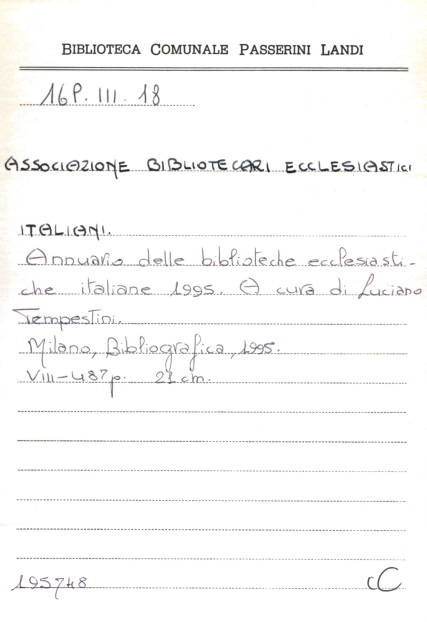 BIBLIOTECA COMUNALE PASSERINI LANDI
16P. III. 18
ASSOCIAZIONE BIBLIOTECARI ECCLESIASTICI
ITALIANI.
Annuario delle biblioteche ecclesiasti-
che italiane 1995. A cura di Luciano
Tempestini.
Milano, Bibliografica, 1995.
VIII-487p. 21 cm.
195748
cC